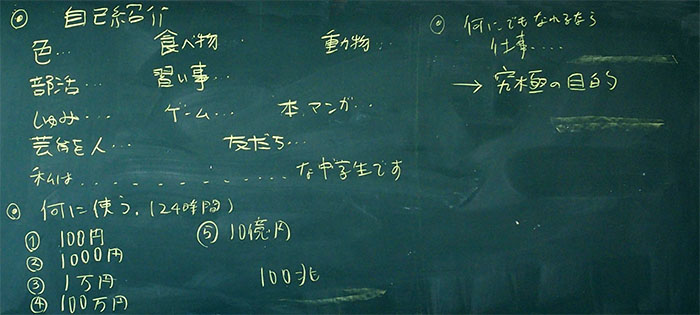 ◎ 自己紹介
色… 食べ物… 動物…
部活… 習い事…
しゅみ… ゲーム… 本、マンガ…
芸能人… 友だち…
私は…………な中学生です
◎ 何に使う.(24時間)
① 100円
② 1000円
③ 1万円
④ 100万円
⑤ 10億円
100兆
◎ 何にでもなれるなら
仕事‥‥
→ 究極の目的